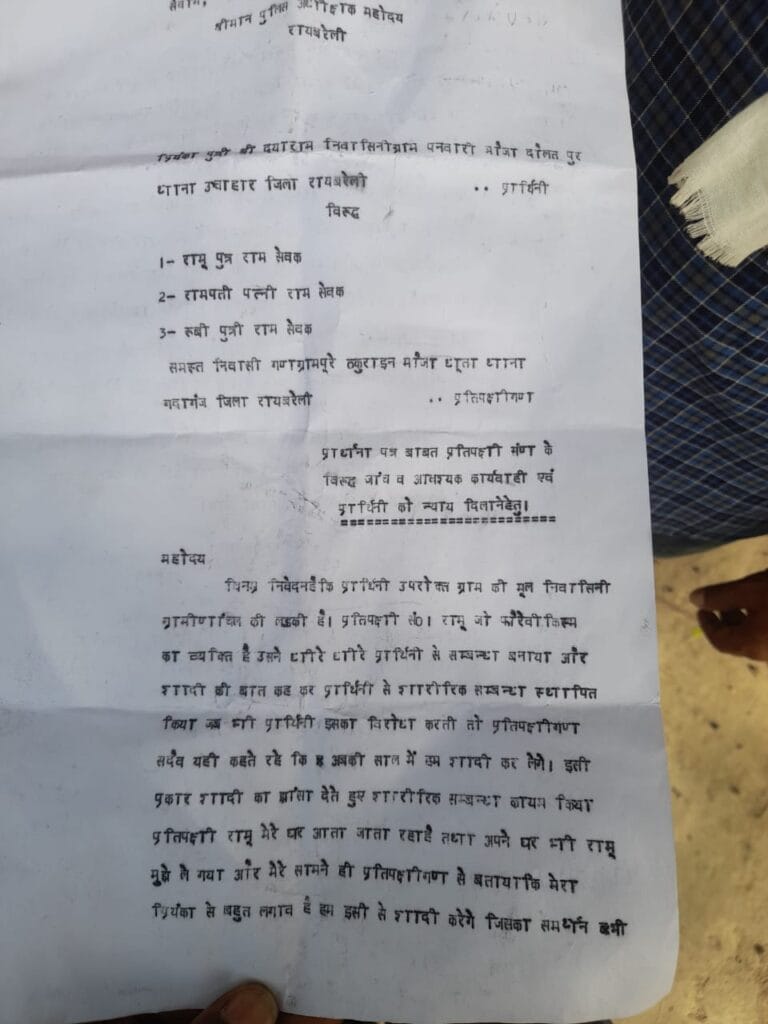 सेवाम,
श्रीमान पुलिस अधीक्षक महोदय
रायबरेली
प्रियंका पुत्री श्री दयाराम निवासिनीग्राम पनवारी माँजा दौलत पुर
थाना उचाहार जिला रायबरेली .. प्रार्थिनी
विरूद्ध
1- रामू पुत्र राम सेवक
2- रामपती पत्नी राम सेवक
3- रूबी पुत्री राम सेवक
समस्त निवासी गणग्रामपूरे ठकुराइन माँजा धूता थाना
गदागंज जिला रायबरेली .. प्रतिपक्षीगण
प्रार्थना पत्र बाबत प्रतिपक्षी गंण के
विरूद्ध जांच व आवश्यक कार्यवाही एवं
प्रार्थिनी को न्याय दिलानेहेतु।
महोदय
विनम्र निवेदनहैकि प्रार्थिनी उपरोक्त ग्राम की मूल निवासिनी
ग्रामीणांचल की लडकी है। प्रतिपक्षी सं0। रामू जो फरेवी किस्म
का व्यक्ति है उसने धीरे धीरे प्रार्थिनी से सम्बन्ध बनाया और
शादी की बात कह कर प्रार्थिनी से शारीरिक सम्बन्ध स्थापित
किया जब भी प्रार्थिनी इसका विरोध करती तो प्रतिपक्षीगण
सदैव यही कहते रहे कि अबकी साल में हम शादी कर लेगे। इसी
प्रकार शादी का झांसा देते हुए शारीरिक सम्बन्ध कायम किया
प्रतिपक्षी रामू मेरे घर आता जाता रहाहै तथा अपने घर भी रामू
मुझे ले गया और मेरे सामने ही प्रतिपक्षीगण से बतायाकि मेरा
प्रियंका से बहुत लगाव है हम इसी से शादी करेगे जिसका समर्थन सभी